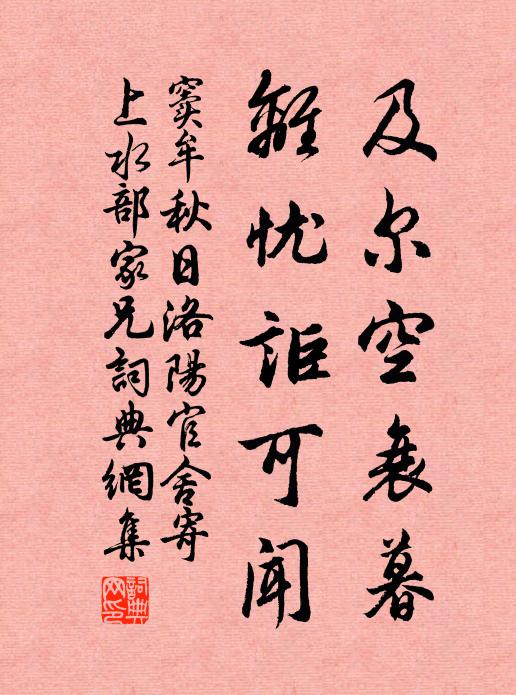 及尔空衰暮
離忧詎可聞
窦牟秋日洛陽官舍寄
上水部家兄詞典網集
詞典
网印